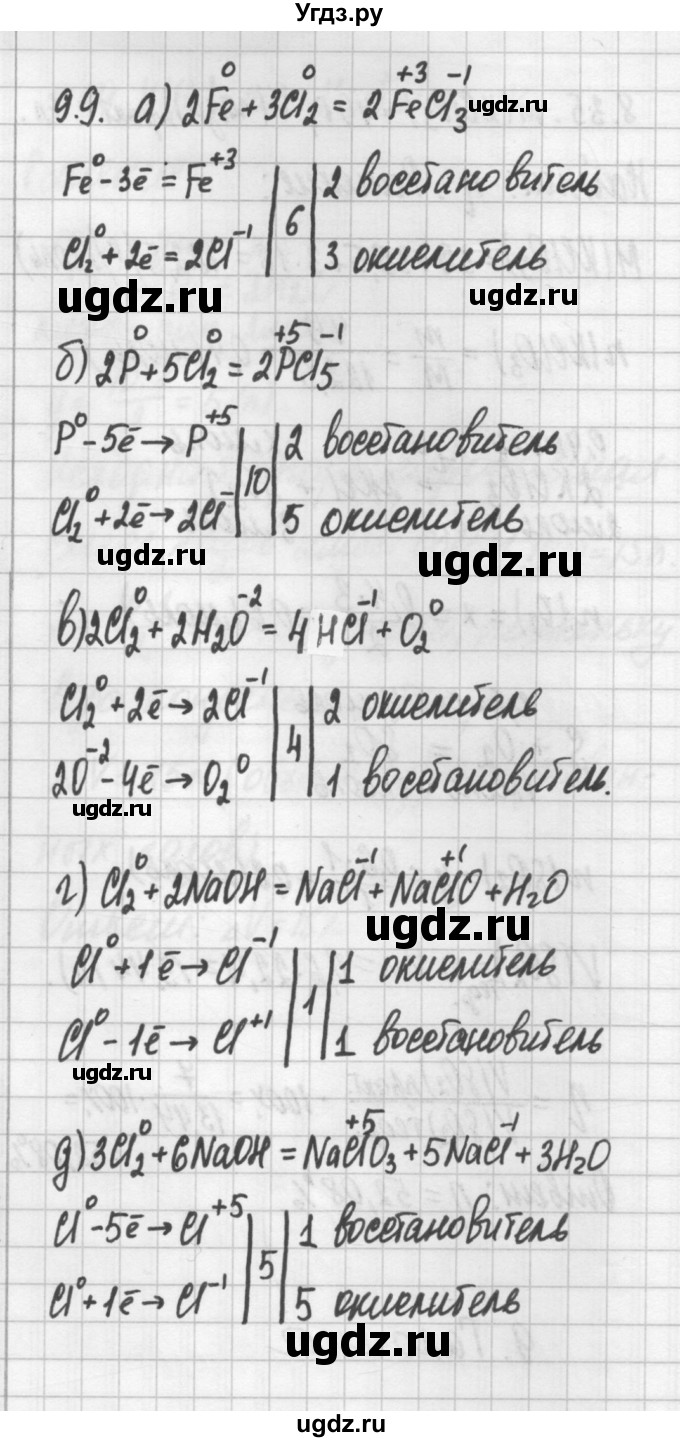 Угдз.ру
9.9. а) 2Fe⁰ + 3Cl₂⁰ = 2Fe⁺³Cl₃⁻¹ ugdz.ru
Fe⁰ - 3ē = Fe⁺³ | 6 | 2 восстановитель
Cl₂⁰ + 2ē = 2Cl⁻¹ | 3 окислитель
ugdz.ru ugdz.ru
б) 2P⁰ + 5Cl₂⁰ = 2P⁺⁵Cl₅⁻¹
P⁰ - 5ē → P⁺⁵ | 10 | 2 восстановитель
Cl₂⁰ + 2ē → 2Cl⁻ | 5 окислитель
ugdz.ru ugdz.ru
в) 2Cl₂⁰ + 2H₂O⁻² = 4HCl⁻¹ + O₂⁰
Cl₂⁰ + 2ē → 2Cl⁻¹ | 4 | 2 окислитель
2O⁻² - 4ē → O₂⁰ | 1 восстановитель.
ugdz.ru
г) Cl₂⁰ + 2NaOH = NaCl⁻¹ + NaCl⁺¹O + H₂O
ugdz.ru
Cl⁰ + 1ē → Cl⁻¹ | 1 | 1 окислитель
Cl⁰ - 1ē → Cl⁺¹ | 1 восстановитель
ugdz.ru
д) 3Cl₂⁰ + 6NaOH = NaCl⁺⁵O₃ + 5NaCl⁻¹ + 3H₂O
Cl⁰ - 5ē → Cl⁺⁵ | 5 | 1 восстановитель
Cl⁰ + 1ē → Cl⁻¹ | 5 окислитель
ugdz.ru
ugdz.ru